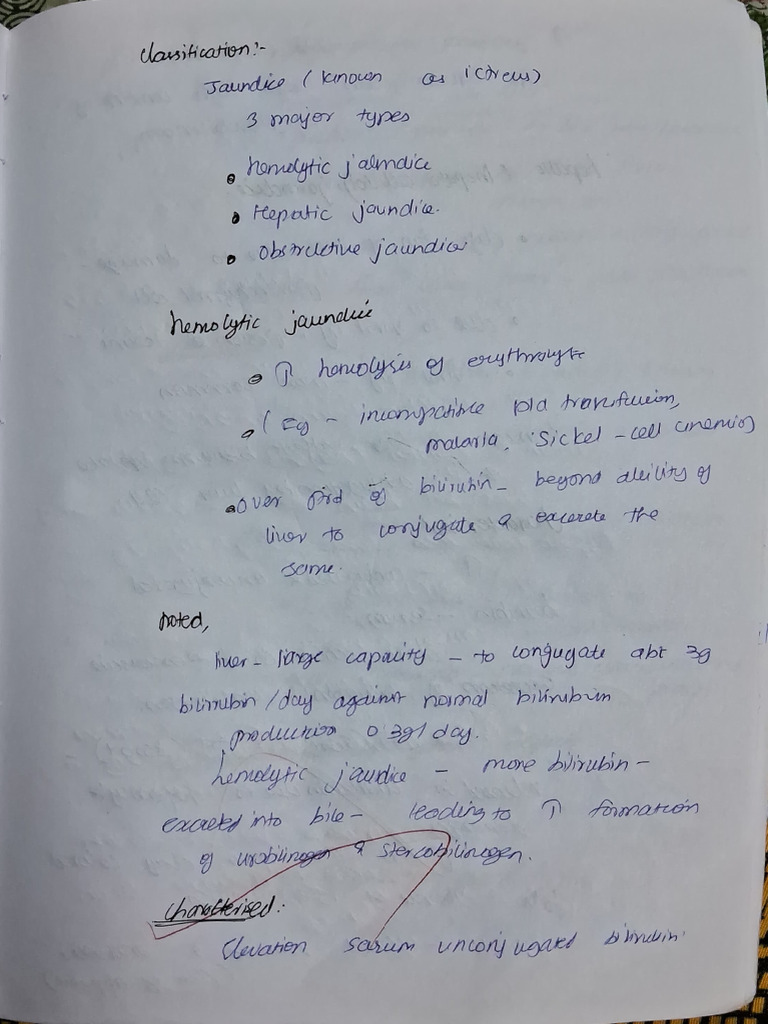 Classification:-
Jaundice (known as icterus)
3 major types
• hemolytic jaundice
• Hepatic jaundice.
• Obstructive jaundice
hemolytic jaundice
• ↑ hemolysis of erythrocyte
• (Eg - incompatible bld transfusion,
malaria, Sickel - cell anemia)
• Over prd of bilirubin - beyond ability of
liver to conjugate & excerete the
same.
noted,
liver - large capacity - to conjugate abt 3g
bilirubin / day against normal bilirubin
production 0.3g/day.
hemolytic jaundice - more bilirubin -
excreted into bile - leading to ↑ formation
of urobilinogen & stercobilinogen.
Characterised:
Elevation serum unconjugated bilirubin.